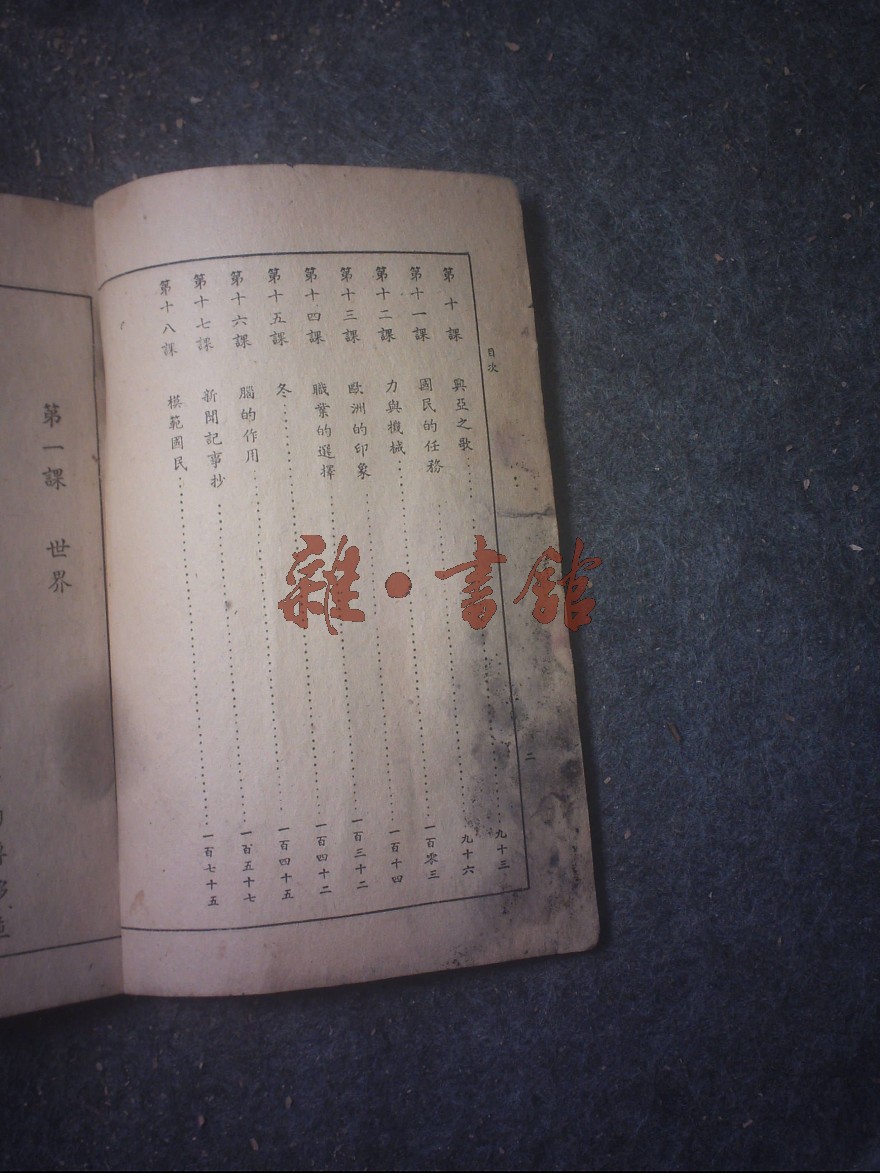 目次
二
第十課 興亞之歌……九十三
第十一課 國民的任務……九十六
第十二課 力與機械……一百零三
第十三課 歐洲的印象……一百十四
第十四課 職業的選擇……一百三十二
第十五課 冬……一百四十二
第十六課 腦的作用……一百四十五
第十七課 新聞記事抄……一百五十七
第十八課 模範國民……一百七十五
第一課 世界
雜·書館